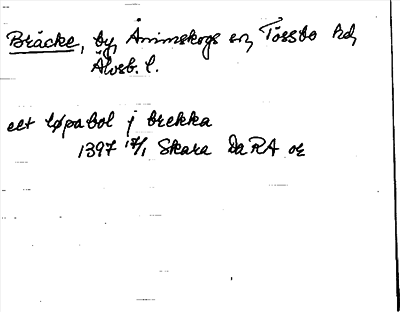 Bräcke, by, Ånimskogs sn, Tössbo hd,
Älvsb. l.
ett løpabol j brekka
1397 17/1 Skara Da RA or